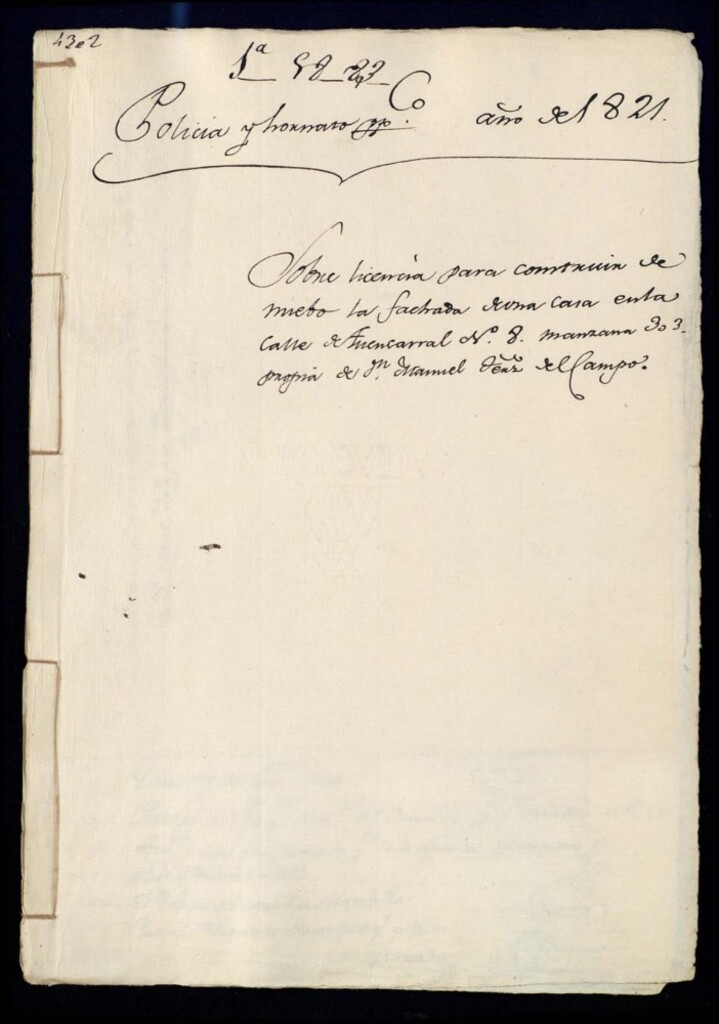 43e2
1ª 58 23
Policia y hornato pp.co año del 1821.
Sobre licencia para construir de
nuebo la fachada de una casa en la
calle de Fuencarral No. 8. manzana 303.
propia de Dn. Manuel del Campo.